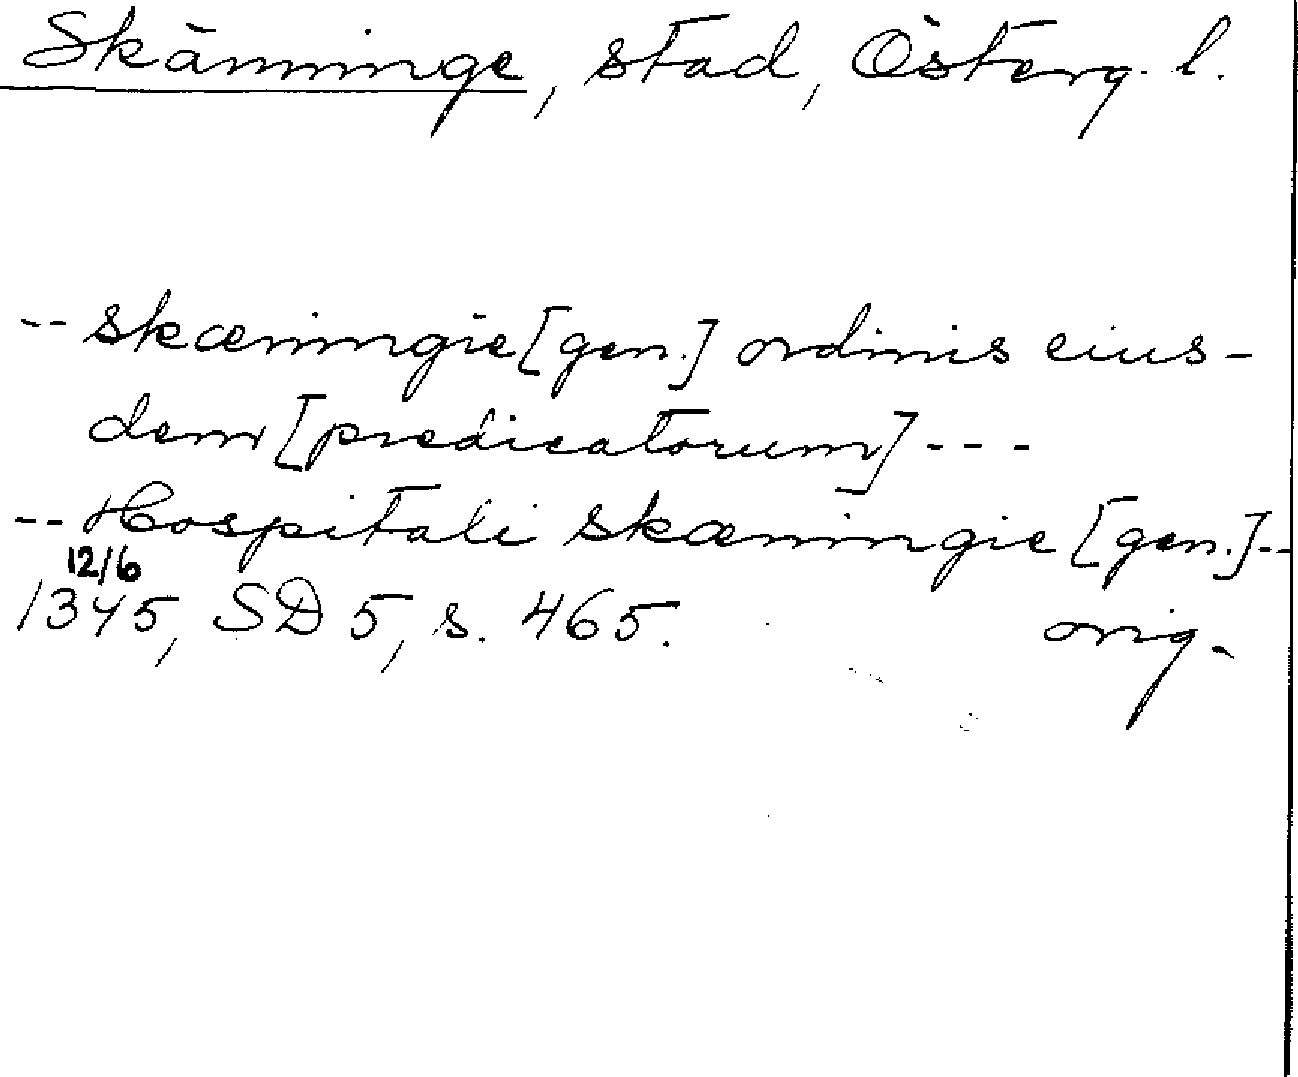 Skänninge, stad, Österg. l.
-- skæningie [gen.] ordinis eius-
dem [predicatorum] ---
-- Hospitali skæningie [gen.] --
12/6
1345, SD 5, s. 465. orig.